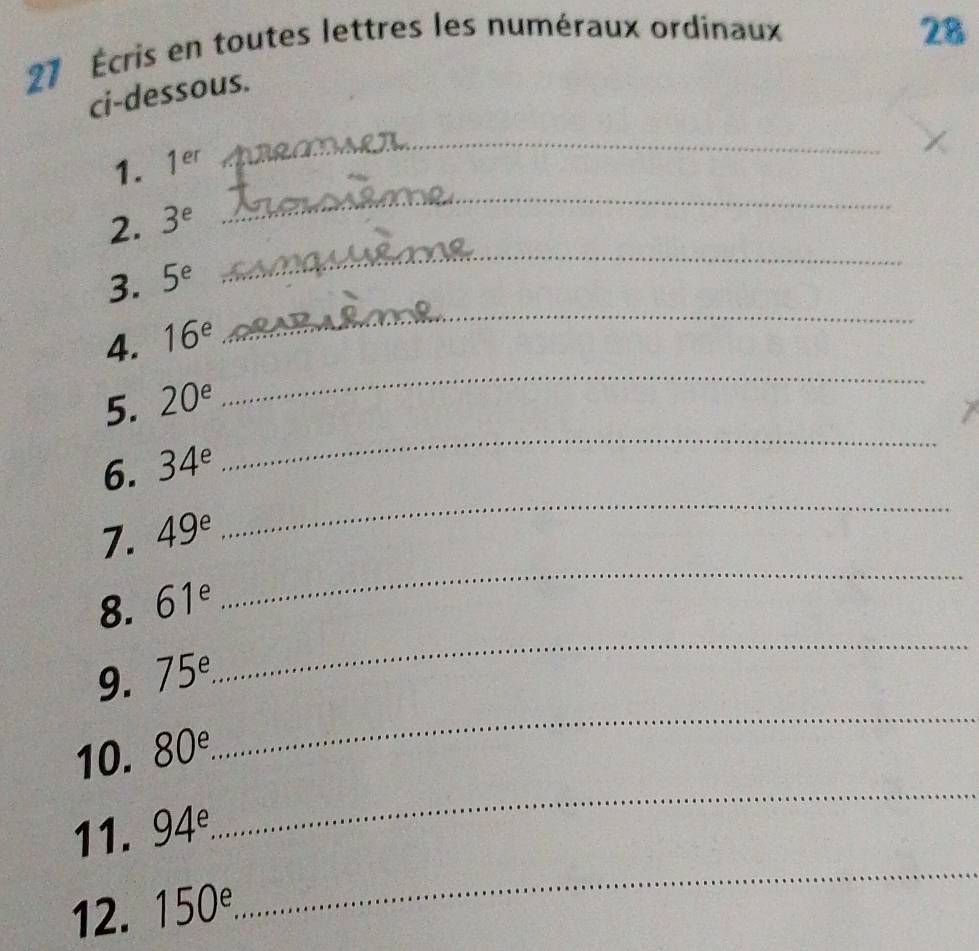 27 Écris en toutes lettres les numéraux ordinaux
ci-dessous.
28
1. 1er premier
2. 3e troisième
3. 5e cinquième
4. 16e seizième
5. 20e
6. 34e
7. 49e
8. 61e
9. 75e
10. 80e
11. 94e
12. 150e